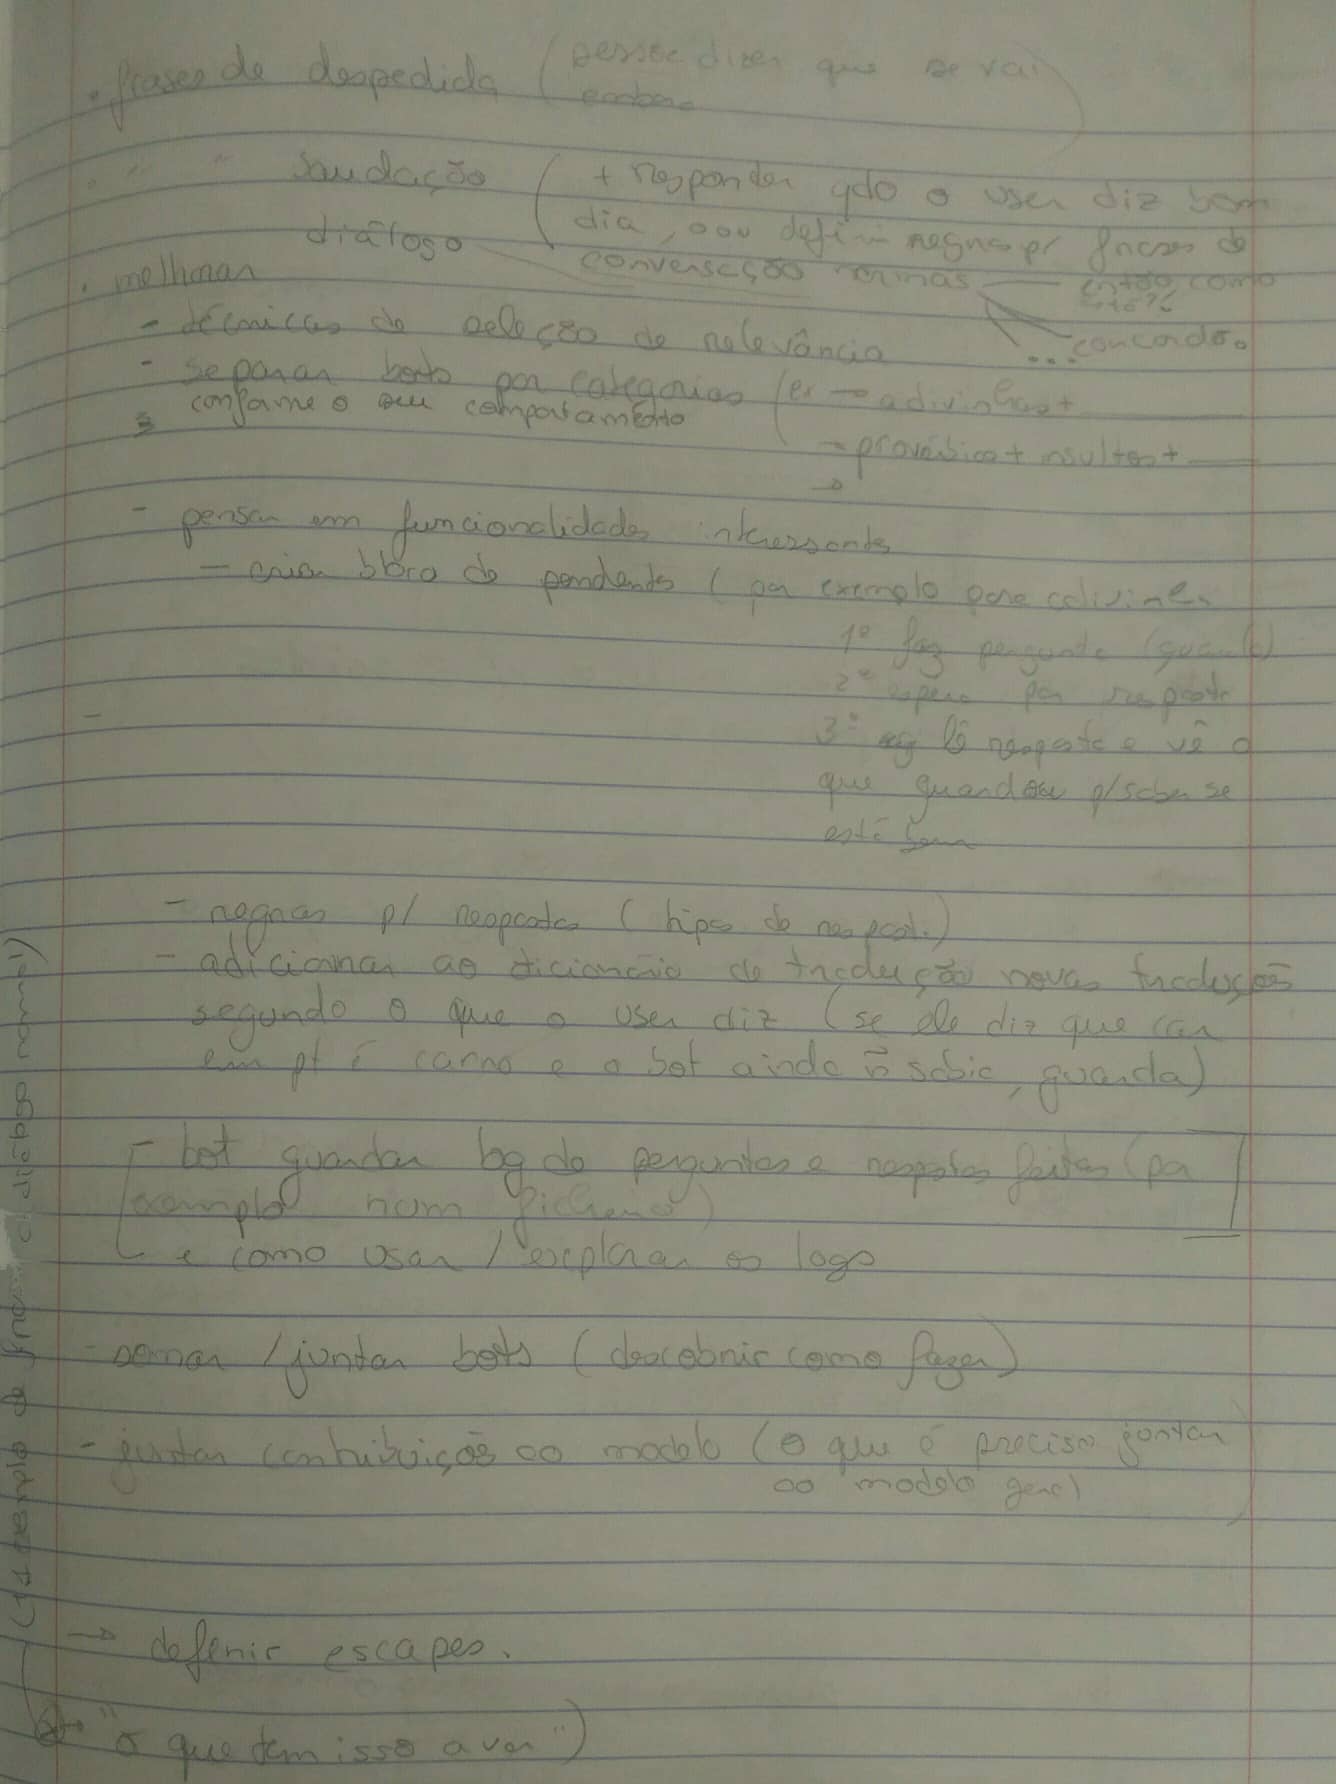 . frases de despedida (pessoa dizer que se vai
embora)
. " " saudação ( + responder qdo o user diz bom
diálogo dia, ... definir regras p/ frases de
conversação normais — então como
está?
. melhorar
... concordo.
- técnicas de seleção de relevância
- separar bots por categorias (ex → adivinhas +
conforme o seu comportamento
→ provérbios + insultos + —
→
- pensar em funcionalidades interessantes
- criar bloco de pendentes (por exemplo para adivinhas
1º faz pergunta (guarda)
2º espera por resposta
3º lê resposta e vê o
que guardou p/ saber se
está bem
- regras p/ respostas (tipos de respost.)
- adicionar ao dicionário de tradução novas traduções
segundo o que o user diz (se ele diz que car
em pt é carro e o bot ainda ñ sabia, guarda)
- bot guardar bg de perguntas e respostas feitas (por
exemplo num ficheiro)
e como usar / explorar os logs
- somar / juntar bots (descobrir como fazer)
- juntar contribuições ao modelo (o que é preciso juntar
ao modelo geral)
→ defenir escapes.
"o que tem isso a ver")
exemplo de frases diálogo normal)